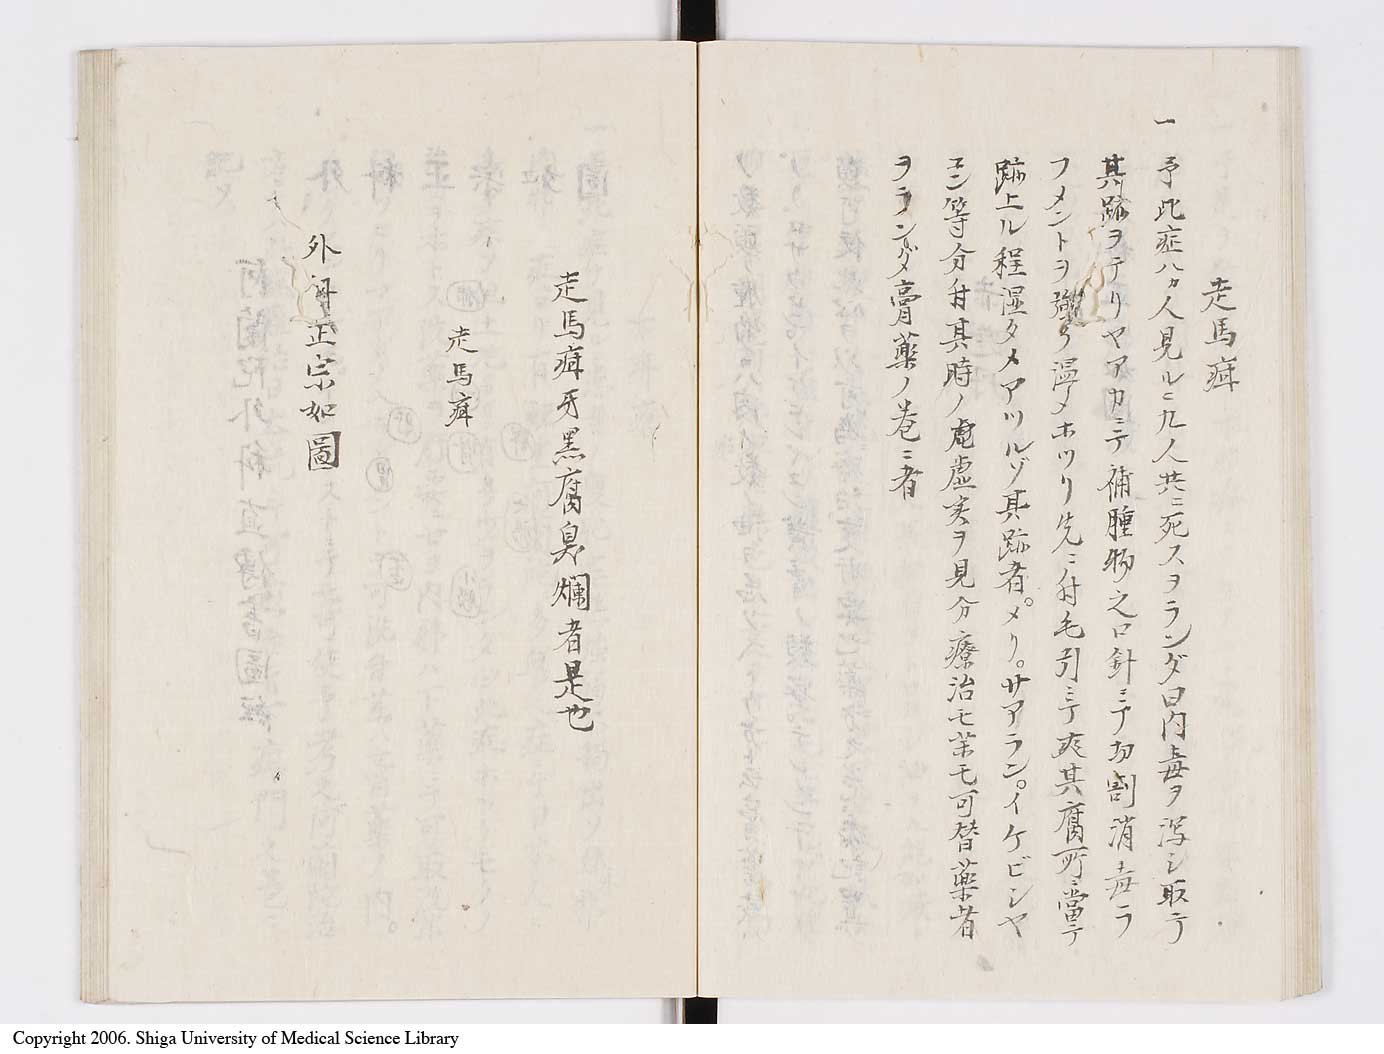 走馬疳
一 予此症八九人見ルニ九人共ニ死スヲランダ曰内毒ヲ瀉シ取テ
其跡ヲテリヤアカニテ補腫物之口針ニテ切割消毒ラ
フメントヲ強ク湿メホツリ先ニ付毛引ニテ爽其腐所ニ當テ
跡上ル程湿タメアツルゾ其跡者メリサアランイケビンヤ
エン等分付其時ノ虚実ヲ見分療治モ茉モ可替薬者
ヲランダ膏薬ノ巻ニ者
走馬疳牙黒腐臭爛者是也
走馬疳
外科正宗如圖
Copyright 2006. Shiga University of Medical Science Library